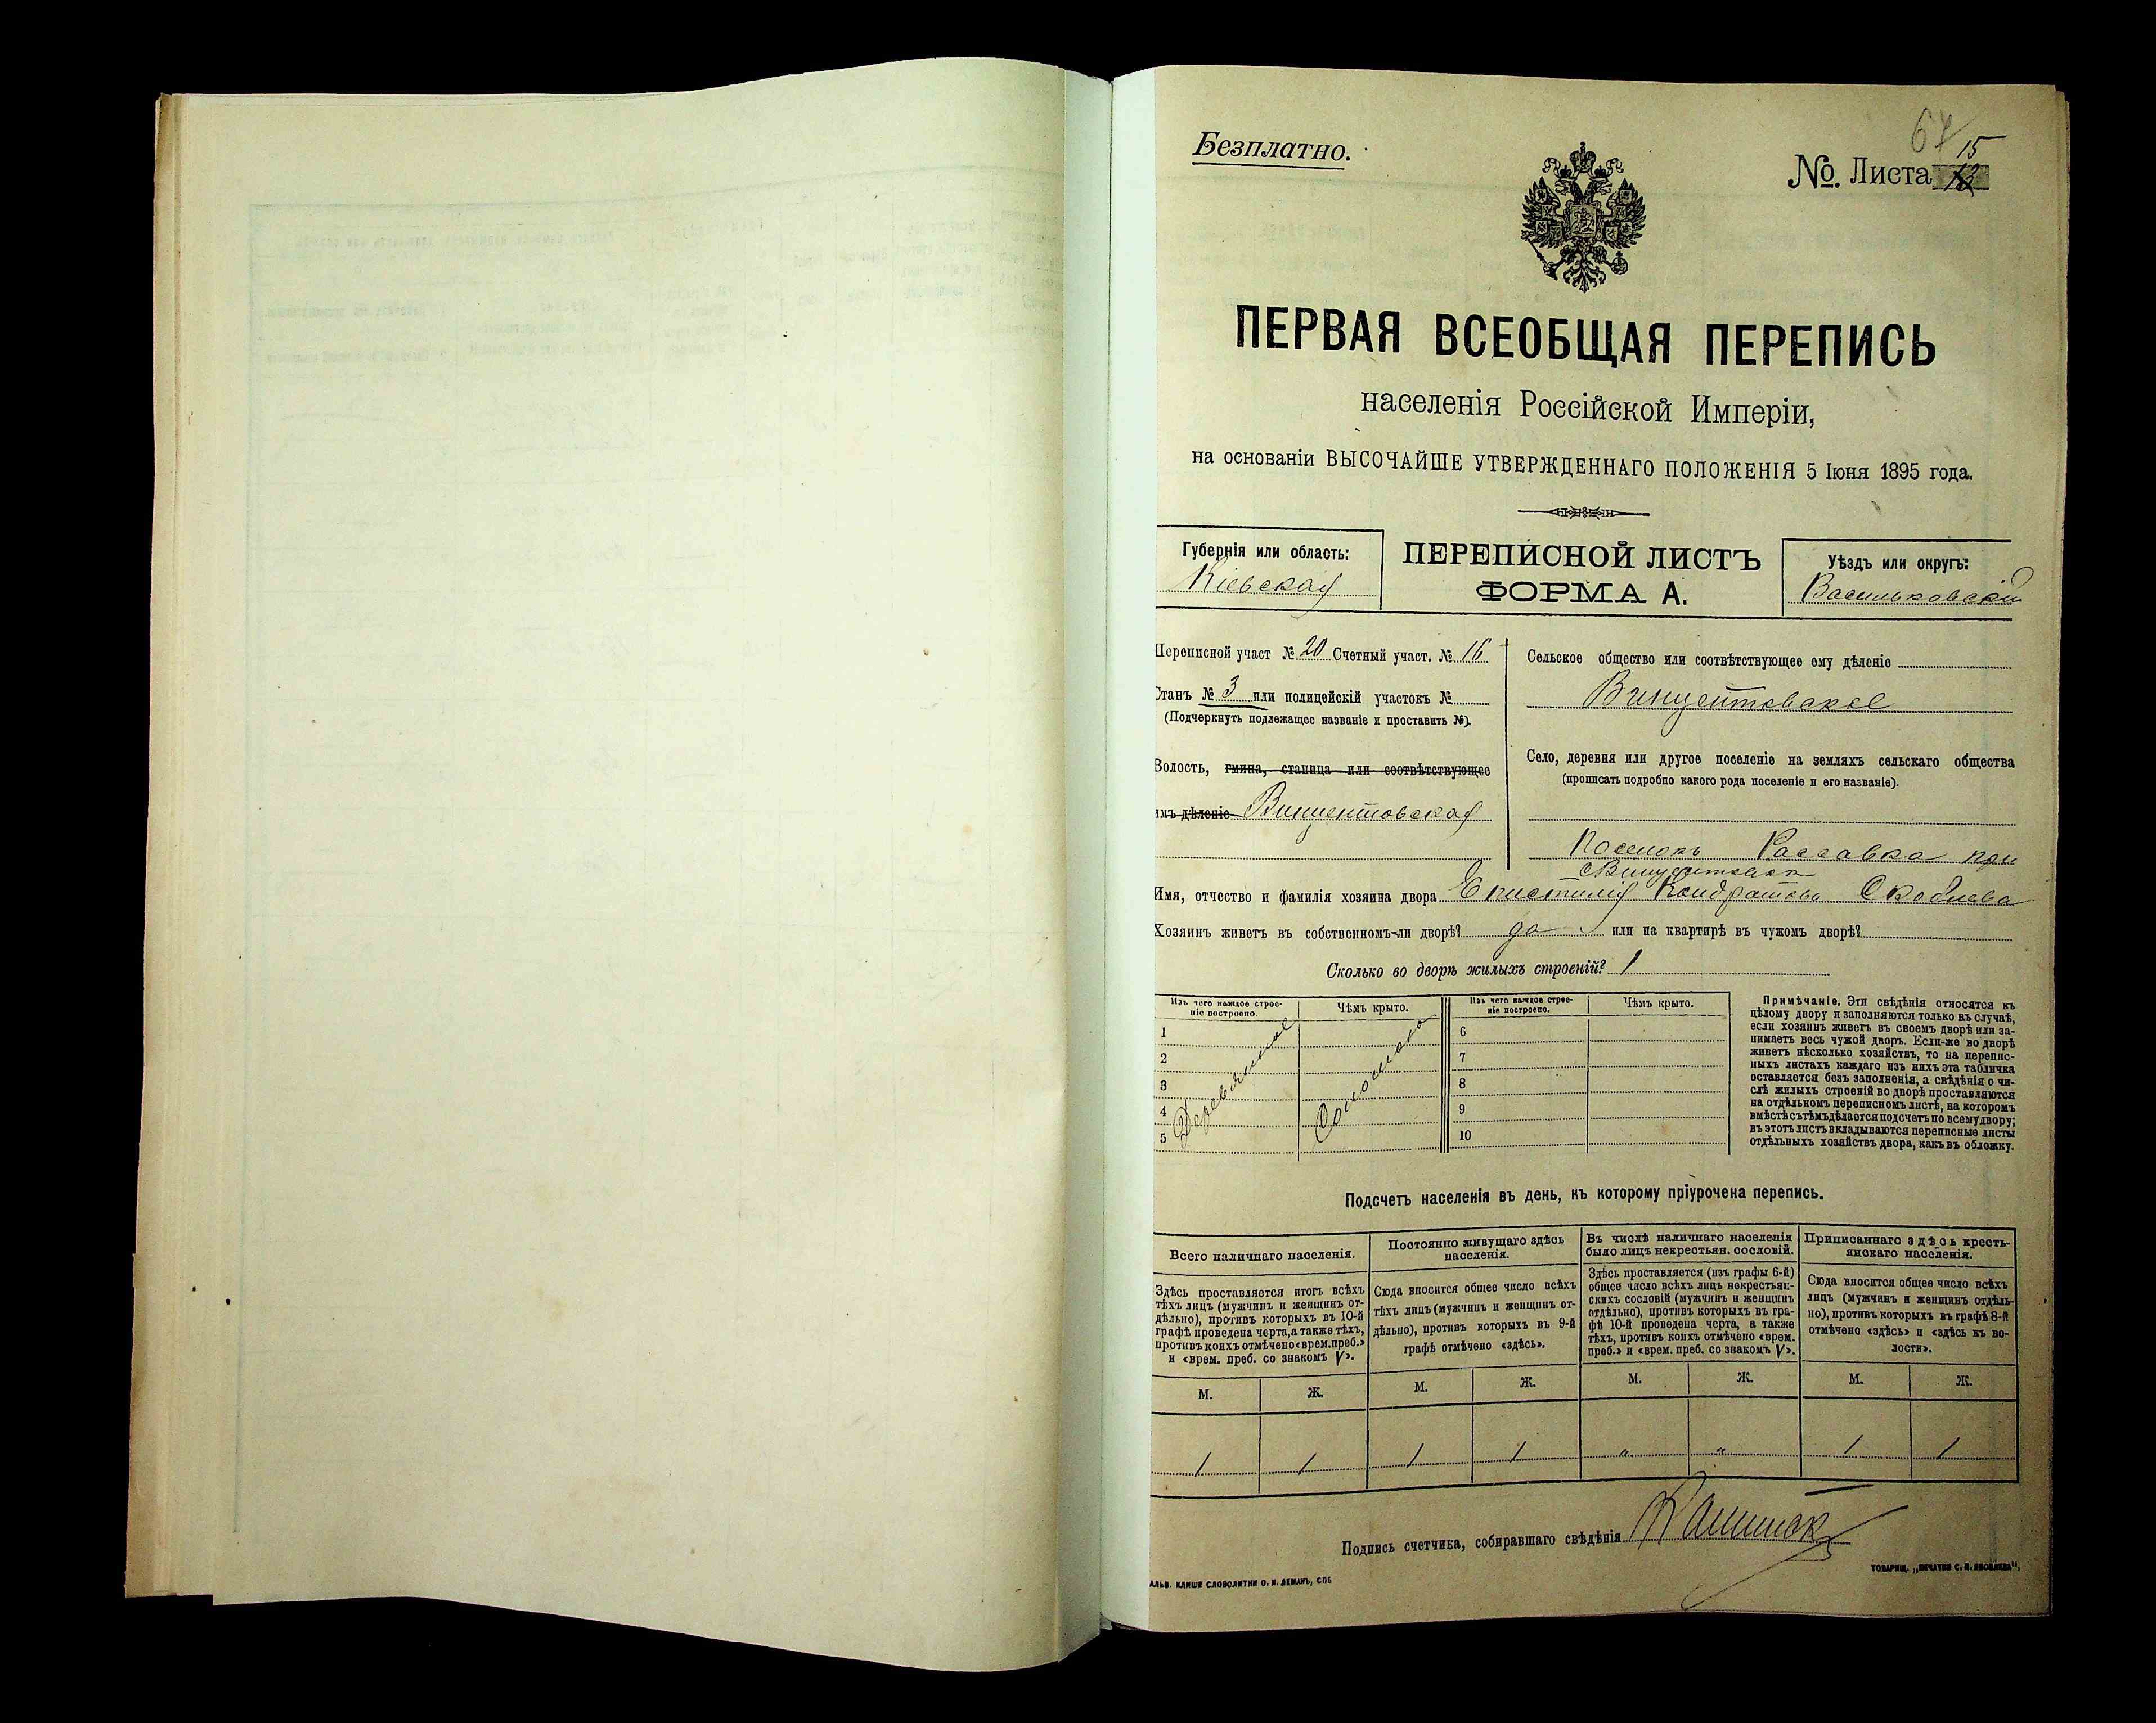 67
Безплатно.
15
№. Листа 13
ПЕРВАЯ ВСЕОБЩАЯ ПЕРЕПИСЬ
населенія Россійской Имперіи,
на основаніи ВЫСОЧАЙШЕ УТВЕРЖДЕННАГО ПОЛОЖЕНІЯ 5 Іюня 1895 года.
Губернія или область:
Кіевская
ПЕРЕПИСНОЙ ЛИСТЪ
ФОРМА А.
Уѣздъ или округъ:
Васильковскій
Переписной участ № 20 Счетный участ. № 16
Станъ № 3 или полицейскій участокъ №
(Подчеркнуть подлежащее названіе и проставить №).
Волость, гмина, станица или соотвѣтствующее
имъ дѣленіе Винцентовская
Сельское общество или соотвѣтствующее ему дѣленіе
Винцентовское
Село, деревня или другое поселеніе на земляхъ сельскаго общества
(прописать подробно какого рода поселеніе и его названіе).
Поселокъ Рассавка при
Имя, отчество и фамилія хозяина двора Епистимія Кондратьева
Хозяинъ живетъ въ собственномъ-ли дворѣ? да или на квартирѣ въ чужомъ дворѣ?
Сколько во дворѣ жилыхъ строеній? 1
Изъ чего каждое строе-
ніе построено.
Чѣмъ крыто.
Изъ чего каждое строе-
ніе построено.
Чѣмъ крыто.
1
2
3
4
5
Деревянное
Соломою
6
7
8
9
10
Примѣчаніе. Эти свѣдѣнія относятся къ
цѣлому двору и заполняются только въ случаѣ,
если хозяинъ живетъ въ своемъ дворѣ или за-
нимаетъ весь чужой дворъ. Если-же во дворѣ
живетъ нѣсколько хозяйствъ, то на перепис-
ныхъ листахъ каждаго изъ нихъ эта табличка
оставляется безъ заполненія, а свѣдѣнія о чи-
слѣ жилыхъ строеній во дворѣ проставляются
на отдѣльномъ переписномъ листѣ, на которомъ
вмѣстѣ съ тѣмъ дѣлается подсчетъ по всему двору;
въ этотъ листъ вкладываются переписные листы
отдѣльныхъ хозяйствъ двора, какъ въ обложку.
Подсчетъ населенія въ день, къ которому пріурочена перепись.
Всего наличнаго населенія.
Постоянно живущаго здѣсь
населенія.
Въ числѣ наличнаго населенія
было лицъ некрестьян. сословій.
Приписаннаго здѣсь кресть-
янскаго населенія.
Здѣсь проставляется итогъ всѣхъ
тѣхъ лицъ (мужчинъ и женщинъ от-
дѣльно), противъ которыхъ въ 10-й
графѣ проведена черта, а также тѣхъ,
противъ коихъ отмѣчено «врем. преб.»
и «врем. преб. со знакомъ V».
Сюда вносится общее число всѣхъ
тѣхъ лицъ (мужчинъ и женщинъ от-
дѣльно), противъ которыхъ въ 9-й
графѣ отмѣчено «здѣсь».
Здѣсь проставляется (изъ графы 6-й)
общее число всѣхъ лицъ некрестьян-
скихъ сословій (мужчинъ и женщинъ
отдѣльно), противъ которыхъ въ гра-
фѣ 10-й проведена черта, а также
тѣхъ, противъ коихъ отмѣчено «врем.
преб.» и «врем. преб. со знакомъ V».
Сюда вносится общее число всѣхъ
лицъ (мужчинъ и женщинъ отдѣль-
но), противъ которыхъ въ графѣ 8-й
отмѣчено «здѣсь» и «здѣсь къ во-
лости».
М. Ж. М. Ж. М. Ж. М. Ж.
1 1 1 1 " " 1 1
Подпись счетчика, собиравшаго свѣдѣнія
АЛЬВ. КЛИШЕ СЛОВОЛИТНИ О. И. ЛЕМАНЪ, СПБ
ТОВАРИЩ. „ПЕЧАТНЯ С. П. ЯКОВЛЕВА",